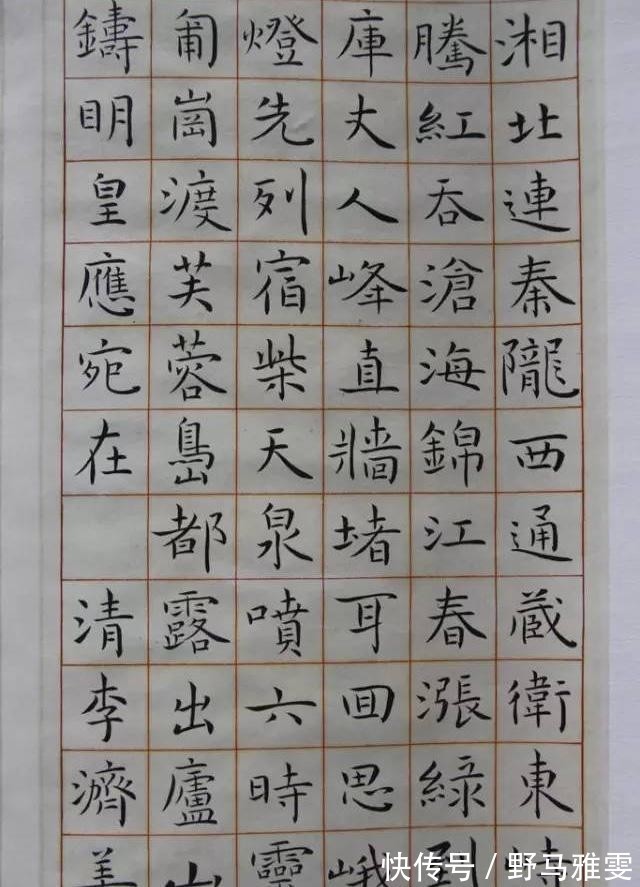 湘北連秦隴西通蔵衛東
騰紅吞滄海錦江春漲緑到
庫丈人峰直牆堵耳回思峨
燈先列宿柴天泉噴六時靈
崗渡芙蓉島都露出廬山
鑄明皇應宛在 清李濟
快传号/野马雅雯